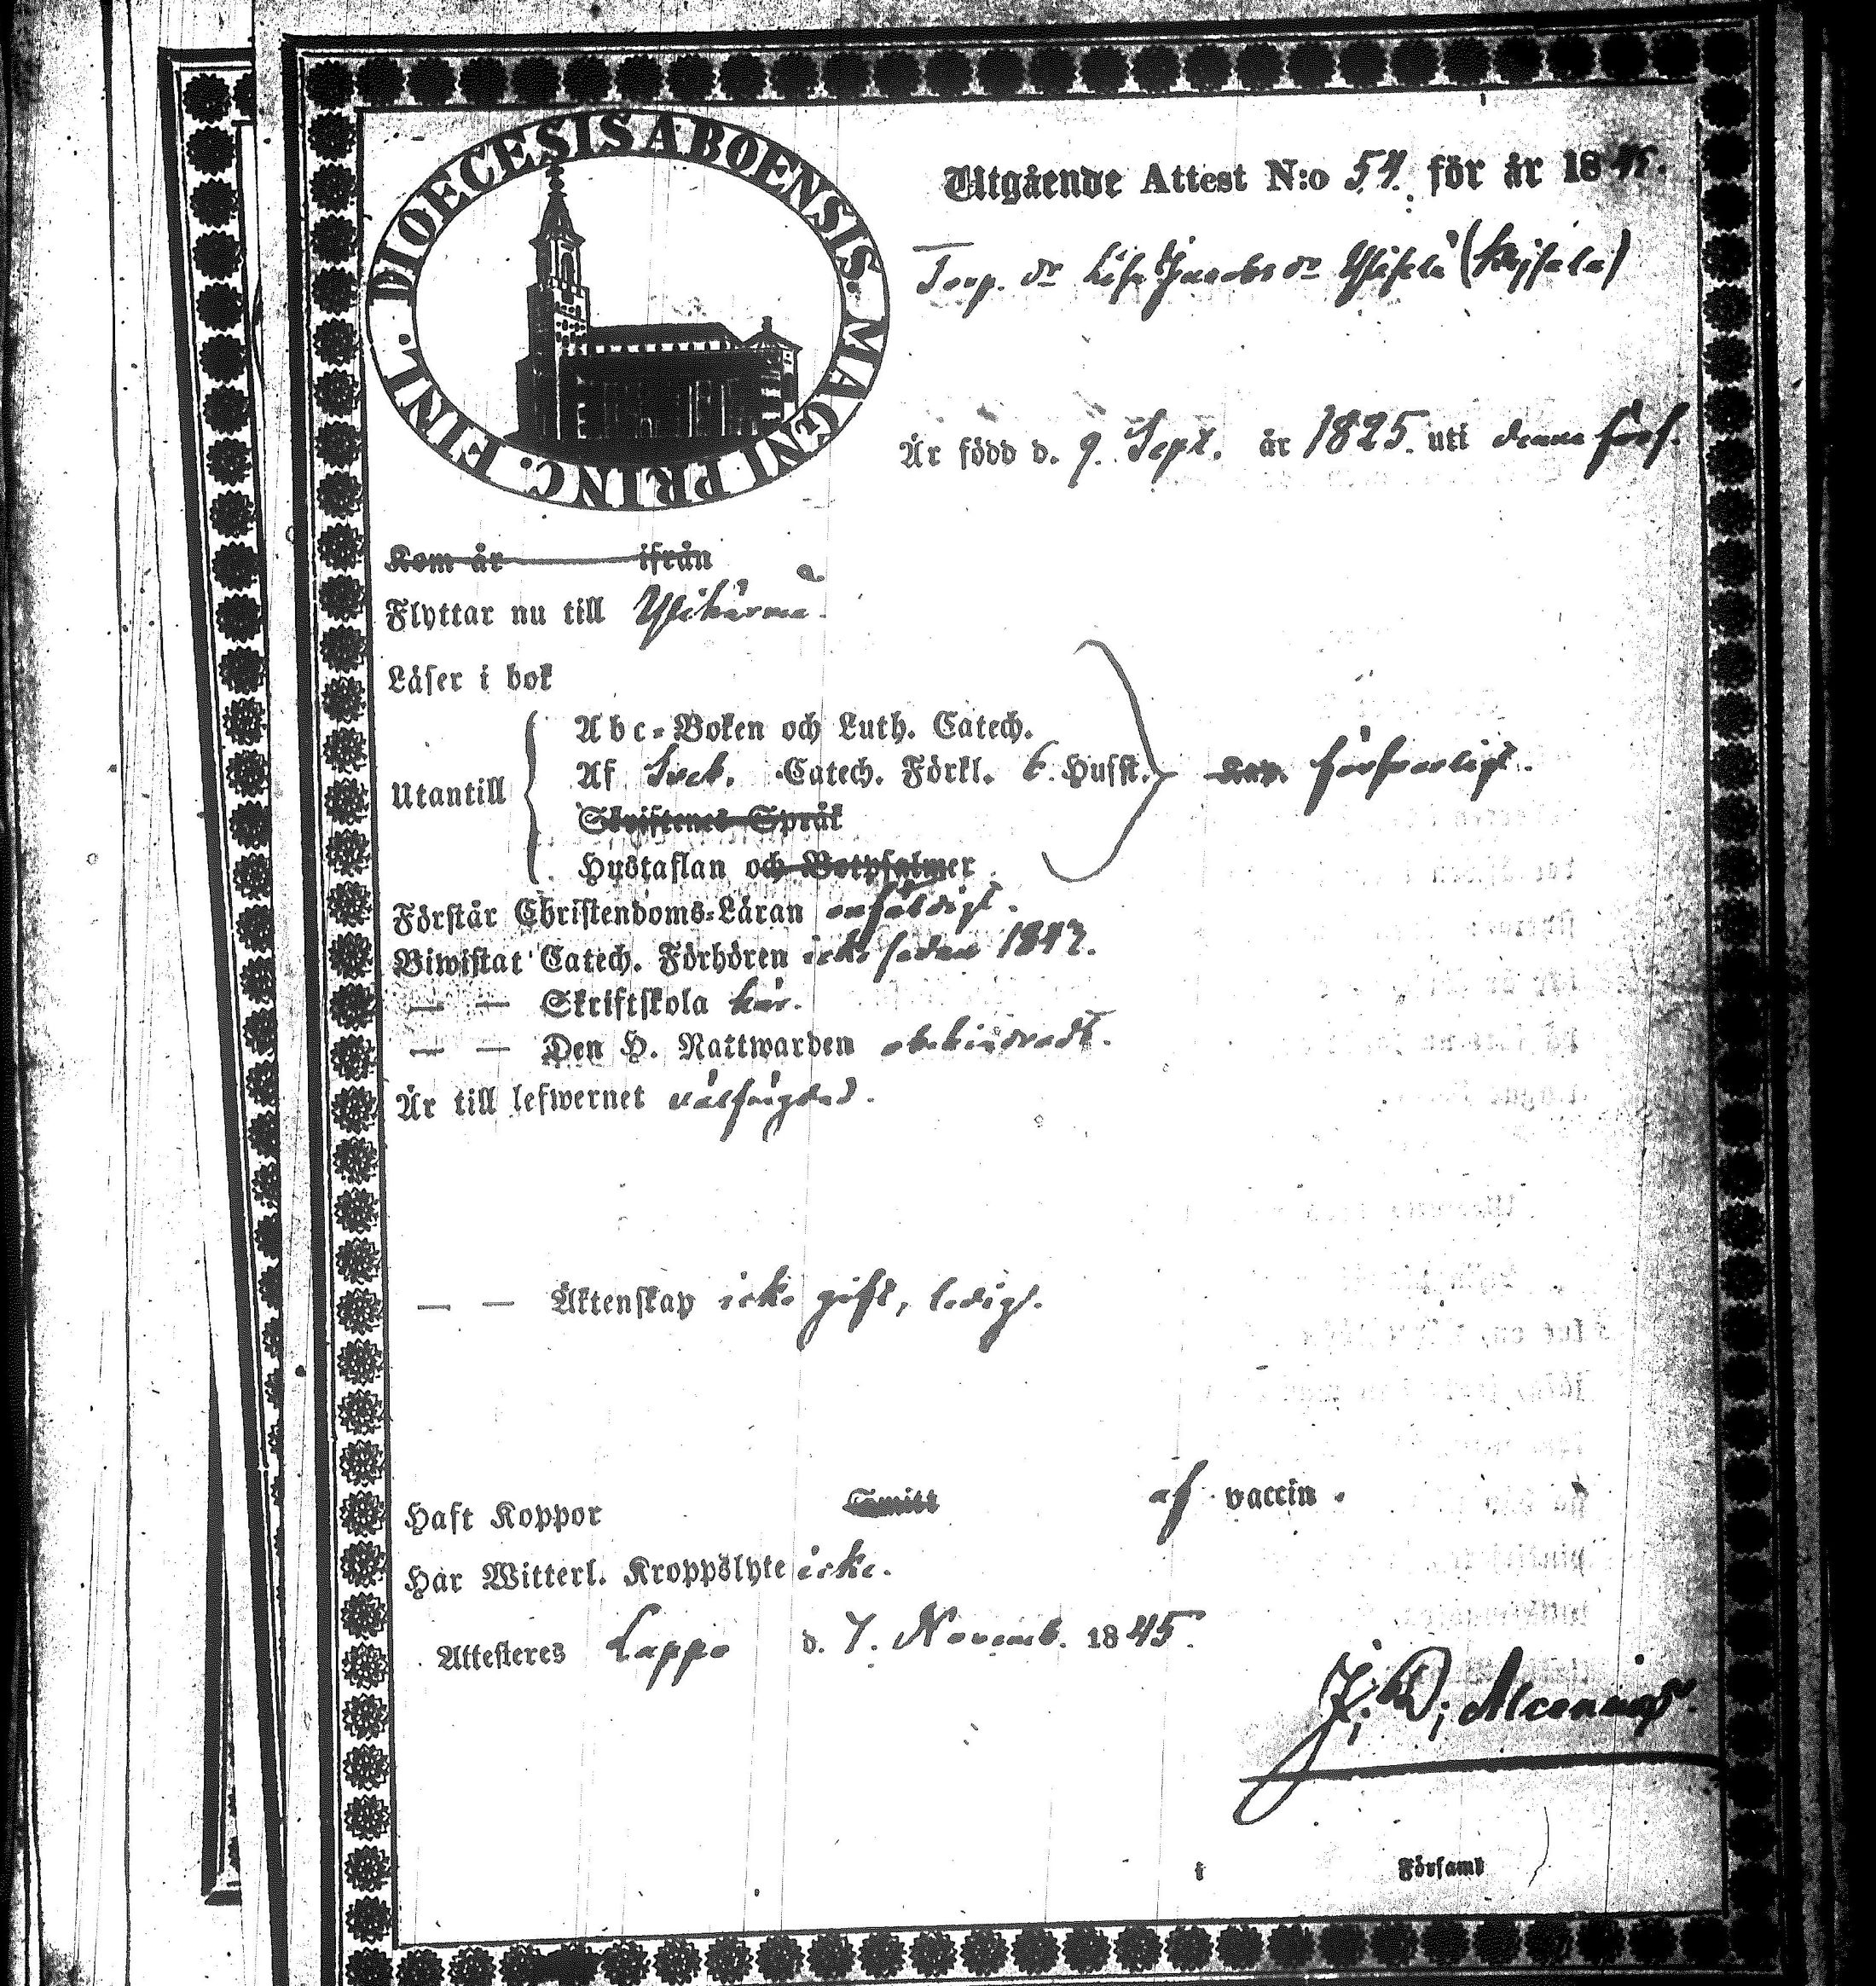 DIOECESIS ABOENSIS. MAGNI PRINC. FINL.
Utgående Attest N:o 54. för år 1845.
Torp. dr Lisa Jacobsdr
Är född d. 9. Sept. år 1825. uti denna förs.
Kom år ifrån
Flyttar nu till Ylikärmä.
Läser i bok
Abc-Boken och Luth. Catech.
Utantill Af Sveb. Catech. Förkl. 6. Hufst. försvarligt.
Skriftenes Språk
Hustaflan och Botpsalmer
Förstår Christendoms-Läran enfaldigt.
Biwistat Catech. Förhören icke sedan 1843.
— — Skriftskola här.
— — Den H. Nattwarden obehindradt.
Är till lefwernet välfrägdad.
— — Äktenskap icke gift, ledig.
Haft Koppor Smitt af vaccin.
Har Witterl. Kroppslyte icke.
Attesteres Lappo d. 7. Novemb. 1845.
J. D. Alcenius
i Församl